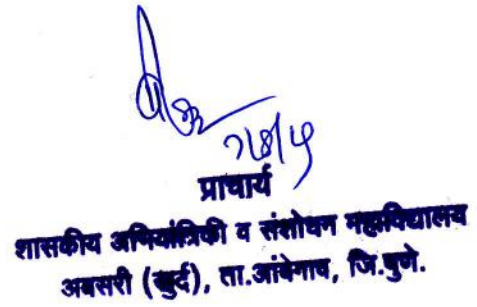 प्राचार्य
शासकीय अभियांत्रिकी व संशोधन महाविद्यालय
अवसरी (खुर्द), ता.आंबेगाव, जि.पुणे.